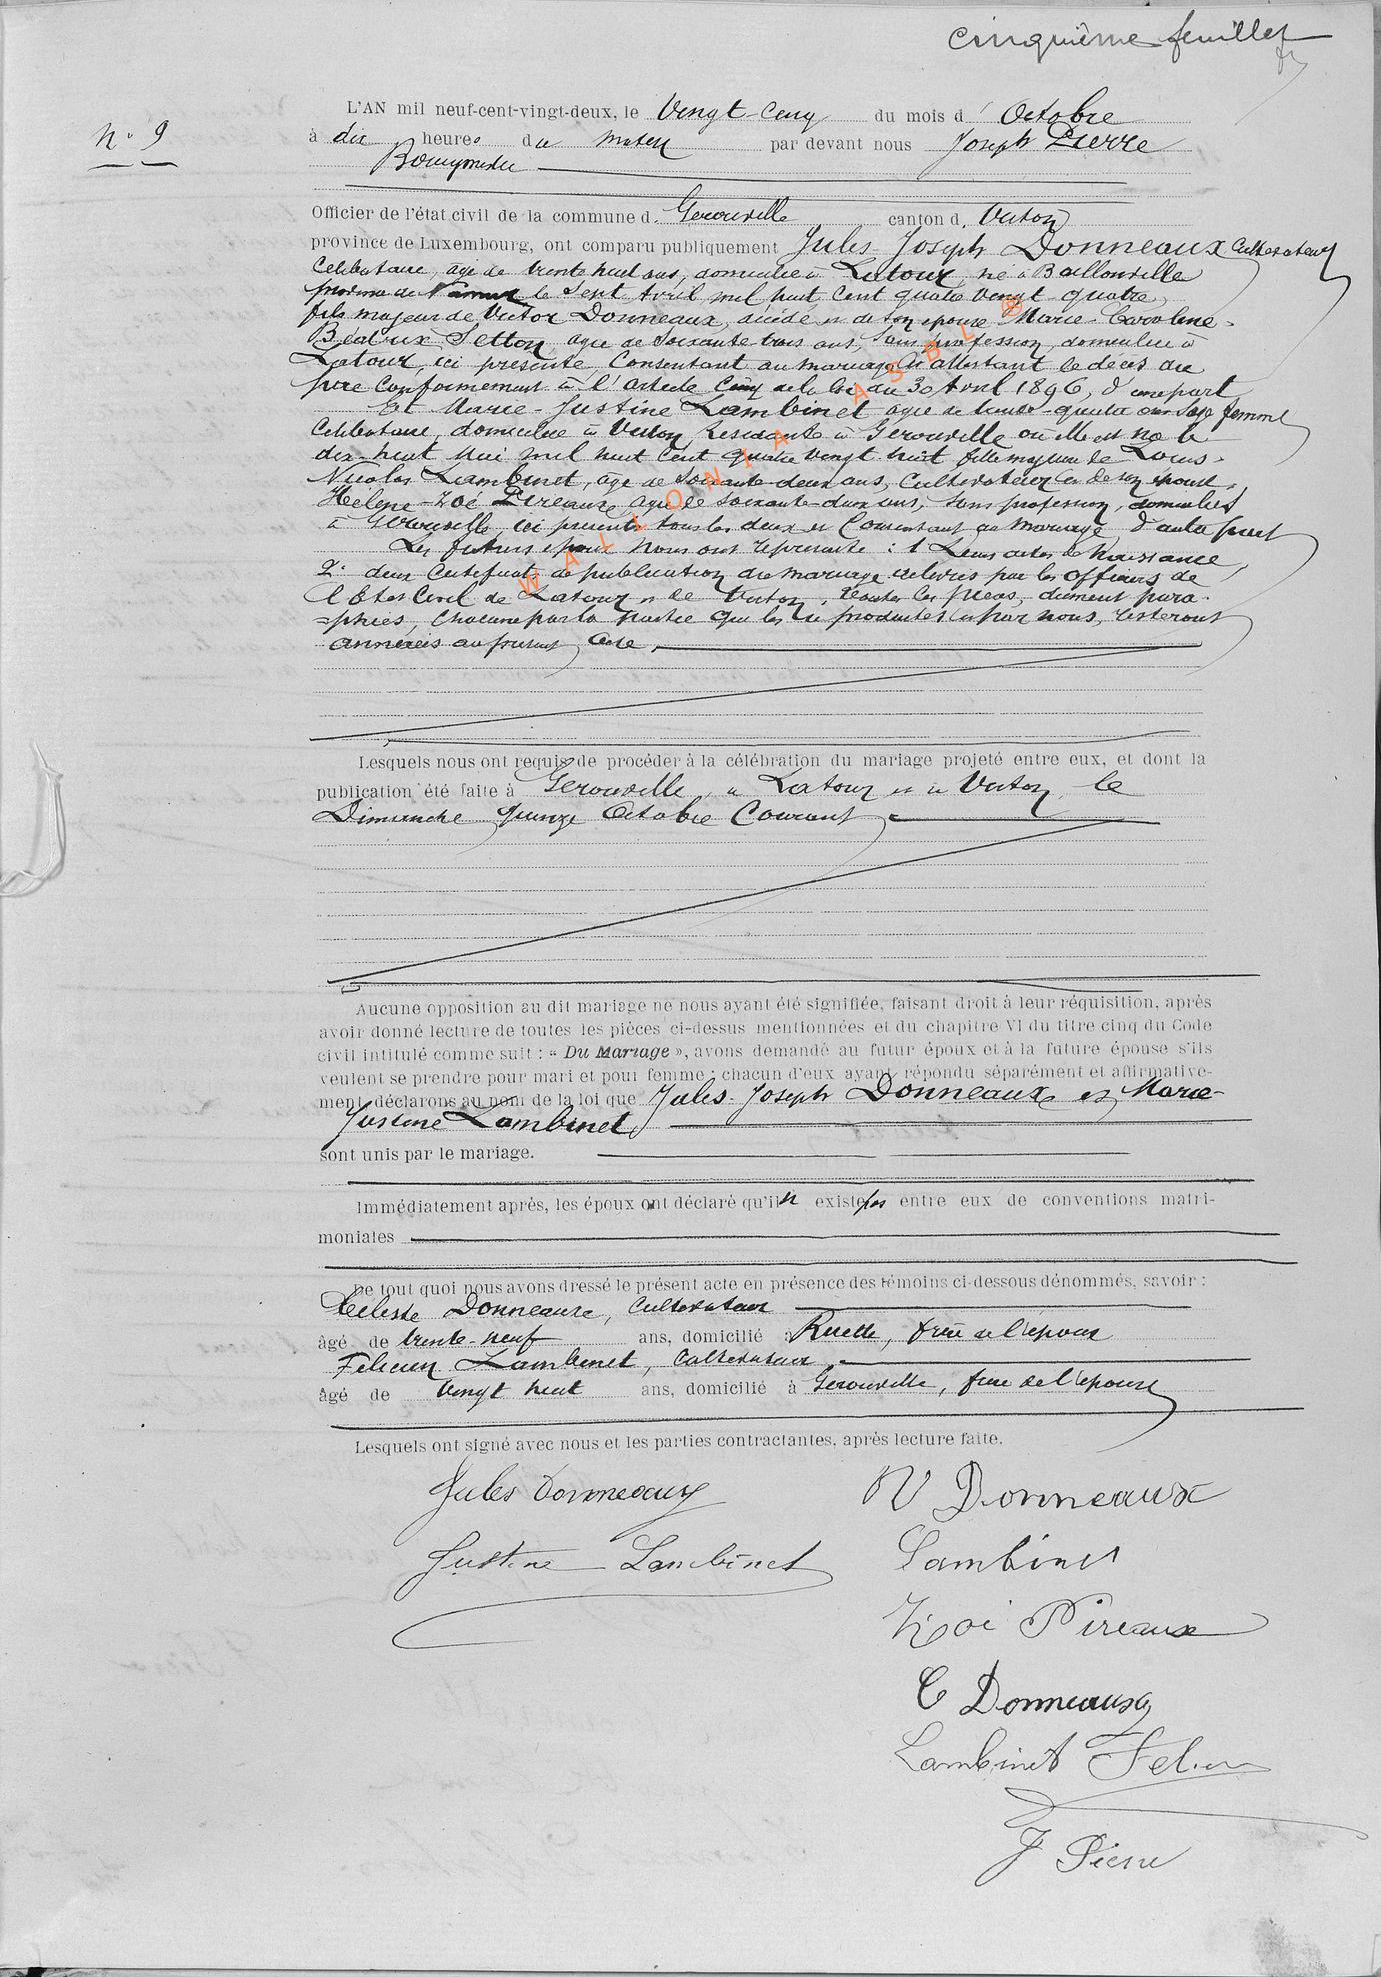 cinquième feuillet
N° 9
L'AN mil neuf-cent-vingt-deux, le Vingt-Cinq du mois d' Octobre
à dix heures du matin par devant nous Joseph Pierre
Bourgmestre
Officier de l'état civil de la commune d. Gérouville canton d. Virton
province de Luxembourg, ont comparu publiquement Jules-Joseph Donneaux Cultivateur
Célibataire, âgé de trente huit ans, domicilié à Latour, né à Baillonville
province de Namur le Sept Avril mil huit cent quatre vingt quatre,
fils majeur de Victor Donneaux, décédé et de son épouse Marie-Caroline-
Béatrix Setton agée de soixante trois ans, sans profession, domiciliée à
Latour, ici présente, Consentant au mariage et attestant le décès du
père Conformément à l'article Cinq de la loi du 30 Avril 1896, d'une part
Et Marie-Justine Lambinet agée de trente-quatre ans Sage femme
Célibataire, domiciliée à Virton, Résidante à Gérouville où elle est née le
dix-huit Mai mil huit Cent quatre vingt huit fille majeure de Louis-
Nicolas Lambinet, âgé de soixante-deux ans, Cultivateur et de son épouse,
Hélène-Zoé Pireaux, agée de soixante-deux ans, sans profession, domiciliés
à Gérouville, ici présents tous les deux et Consentant au mariage d'autre part
Les futurs époux nous ont représenté : 1° Leurs actes de Naissance,
2° deux Certificats de publication du mariage délivrés par les officiers de
l'Etat Civil de Latour et de Virton, toutes les pièces, dûment para-
=phées, Chacune par la partie qui les a produites et par nous, resteront
annexées au présent acte,
Lesquels nous ont requis de procéder à la célébration du mariage projeté entre eux, et dont la
publication été faite à Gérouville, à Latour et à Virton, le
Dimanche quinze Octobre Courant
Aucune opposition au dit mariage ne nous ayant été signifiée, faisant droit à leur réquisition, après
avoir donné lecture de toutes les pièces ci-dessus mentionnées et du chapitre VI du titre cinq du Code
civil intitulé comme suit : « Du Mariage », avons demandé au futur époux et à la future épouse s'ils
veulent se prendre pour mari et pour femme ; chacun d'eux ayant répondu séparément et affirmative-
ment, déclarons au nom de la loi que Jules-Joseph Donneaux et Marie-
Justine Lambinet
sont unis par le mariage.
Immédiatement après, les époux ont déclaré qu'il n' existe pas entre eux de conventions matri-
moniales
De tout quoi nous avons dressé le présent acte en présence des témoins ci-dessous dénommés, savoir :
Céleste Donneaux, Cultivateur
âgé de trente-neuf ans, domicilié à Ruette, frère de l'époux
Félicien Lambinet, Cultivateur
âgé de vingt huit ans, domicilié à Gérouville, frère de l'épouse
Lesquels ont signé avec nous et les parties contractantes, après lecture faite.
Jules Donneaux
V Donneaux
Justine Lambinet
Lambinet
Zoé Pireaux
C Donneaux
Lambinet Felicien
J Pierre
WALLONIA ASBL ®